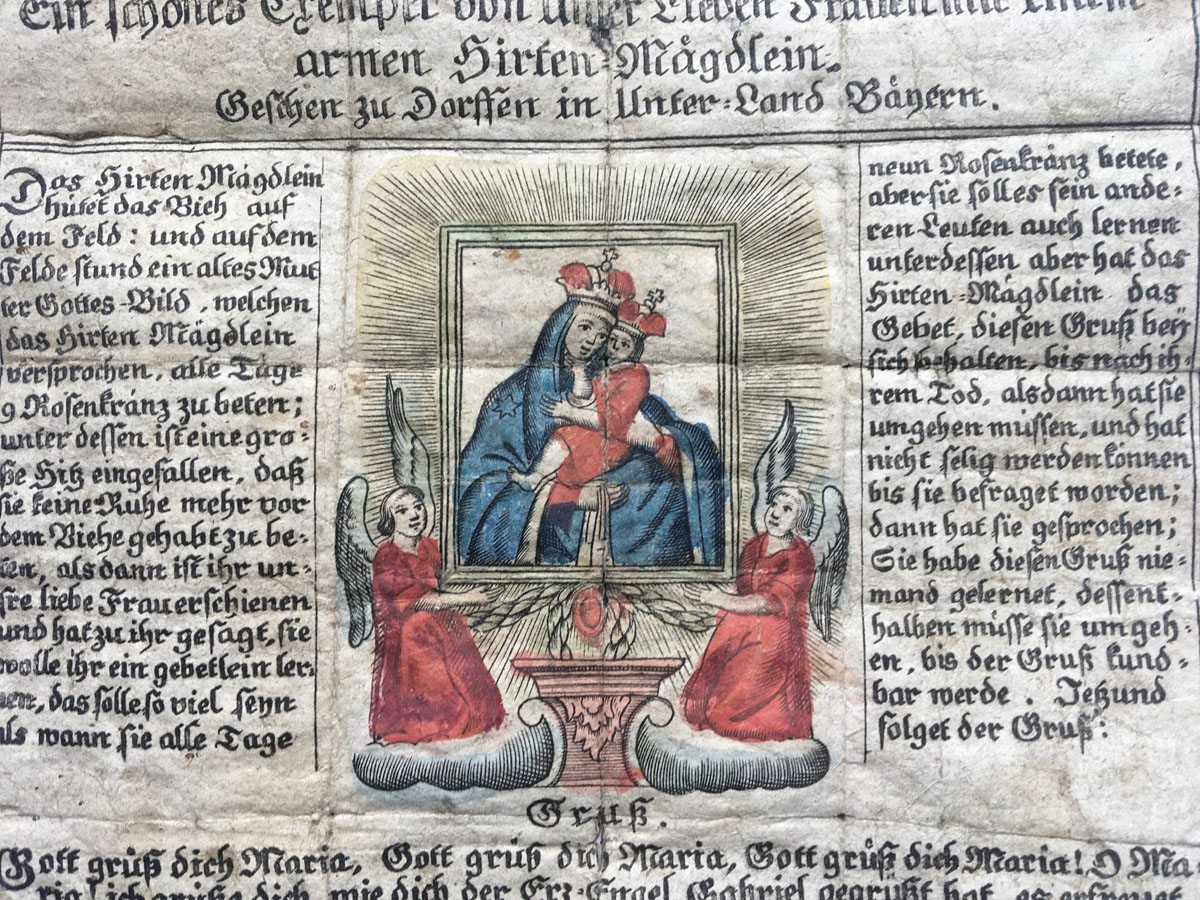 Ein schönes Exempel von Unser Lieben Frauen mit einem
armen Hirten-Mågdlein.
Geschen zu Dorffen in Unter-Land Båyern.
Das Hirten Mågdlein
hütet das Vieh auf
dem Feld: und auf dem
Felde stund ein altes Mut
ter Gottes-Bild, welchen
das Hirten Mågdlein
versprochen, alle Tage
9 Rosenkrånz zu beten;
unter dessen ist eine gro-
ße Hitz eingefallen, daß
sie keine Ruhe mehr vor
dem Viehe gehabt zu be-
ten, als dann ist ihr un-
sre liebe Frau erschienen
und hat zu ihr gesagt, sie
wolle ihr ein gebetlein ler-
nen, das solle so viel seyn
als wann sie alle Tage
neun Rosenkrånz betete,
aber sie soll es sein ande-
ren Leuten auch lernen
unterdessen aber hat das
Hirten-Mågdlein das
Gebet, diesen Gruß beÿ
sich behalten, bis nach ih-
rem Tod, alsdann hat sie
umgehen müssen, und hat
nicht selig werden können
bis sie befraget worden;
dann hat sie gesprochen;
Sie habe diesen Gruß nie-
mand gelernet, dessent-
halben müsse sie umgeh-
en, bis der Gruß kund-
bar werde. Jetzund
folget der Gruß:
Gruß.
Gott grüß dich Maria, Gott grüß dich Maria, Gott grüß dich Maria! O Ma
ria! ich grüße dich, wie dich der Erz-Engel Gabriel gegrüßt hat, es erfreuet